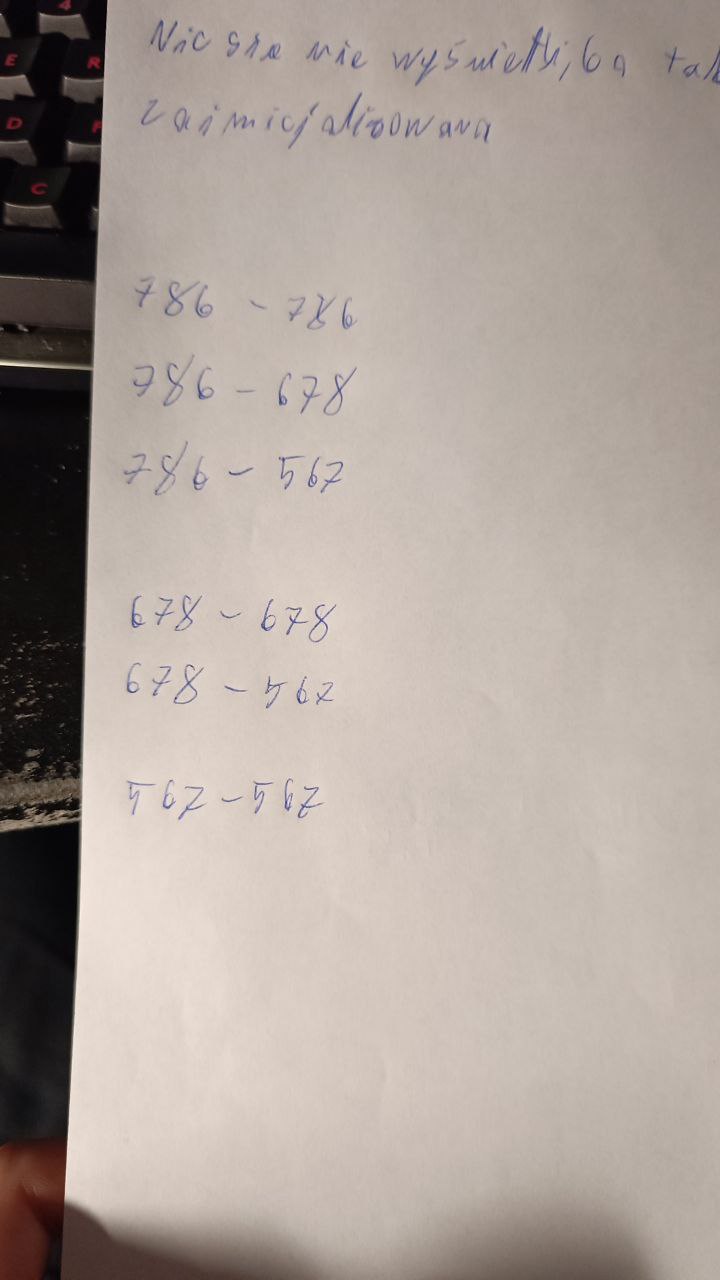 4
E R
D F
C
Nic się nie wyświetli, bo tab
zainicjalizowana
786 - 786
786 - 678
786 - 567
678 - 678
678 - 567
567 - 567